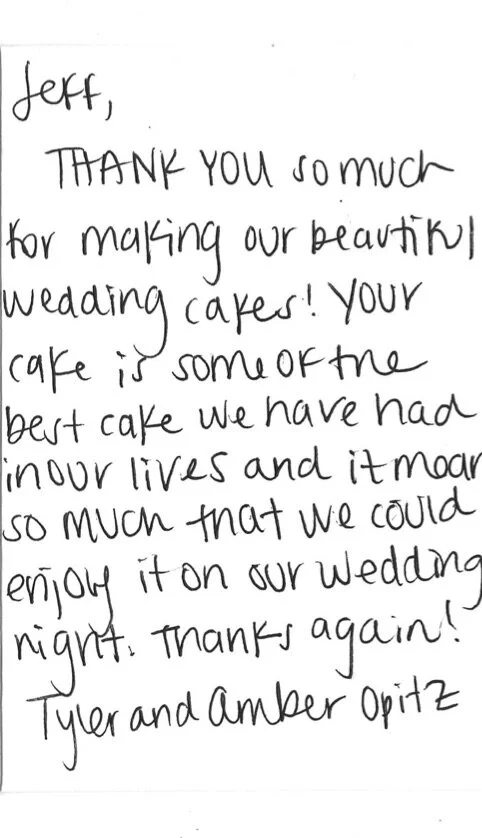 Jeff,
THANK YOU so much
for making our beautiful
wedding cakes! Your
cake is some of the
best cake we have had
in our lives and it mean
so much that we could
enjoy it on our wedding
night. Thanks again!
Tyler and Amber Opitz